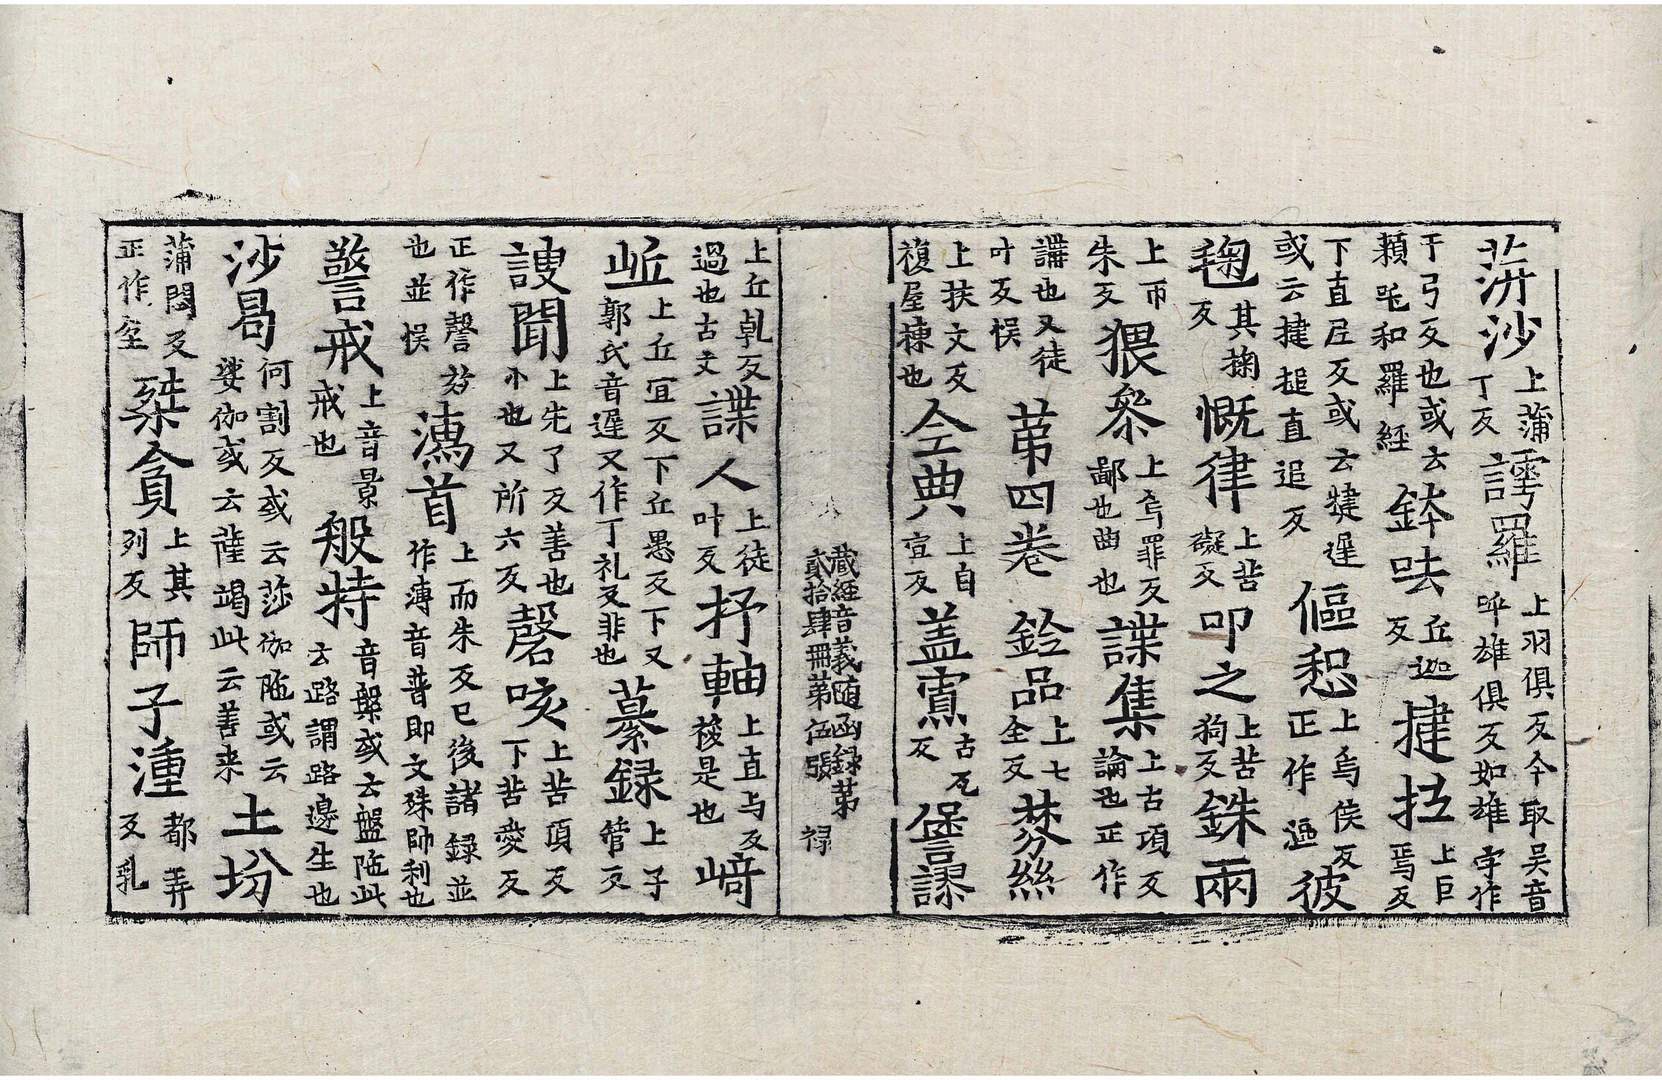 蓱沙上蒲丁反謣羅上羽俱反今取吳音吽雄俱反如雄字作
于弓反也或云頼吒和羅經鉢呿丘迦反揵抾上巨焉反
下直㞐反或云犍遲或云揵搥直追反傴㥜上烏侯反正作漚彼
毱其掬反慨律上苦礙反叩之上苦狗反銖兩
上市朱反猥叅上烏罪反鄙也曲也諜集上古項反論也正作
講也又徒叶反悞苐四卷鈴品上七全反棼絲
上扶文反複屋棟也仝典上自宣反盖𧇊古瓦反譽謬
藏經音義随函録第貳拾肆冊第伍張 禄
上丘乹反過也古文諜人上徒叶反抒軸上直与反𥞵是也﨑
岴上丘冝反下丘愚反下又郭氏音遲又作丁礼反非也蓦録上子管反
謏聞上先了反善也小也又所六反䯊咳上苦頂反下苦愛反
正作謦欬也並悞濡首上而朱反已後諸録並作溥音普即文殊師利也
警戒上音景戒也般特音槃或云盤陁此云路謂路邊生也
沙曷何割反或云莎伽陁或云娑伽或云薩竭此云善来土坋
蒲悶反正作坌桀貪上其列反師子湩都弄反乳